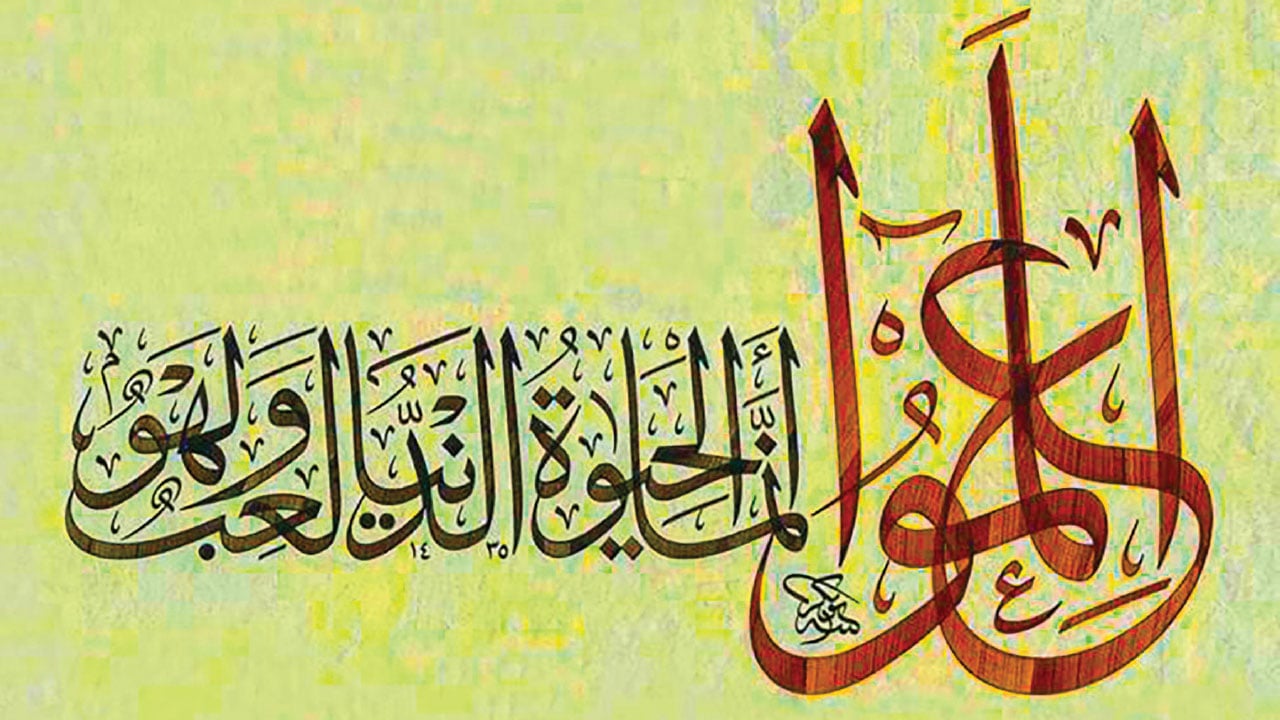 اِعْلَمُوا أَنَّمَا الْحَيٰوةُ الدُّنْيَا لَعِبٌ وَلَهْوٌ
١٤٣٥